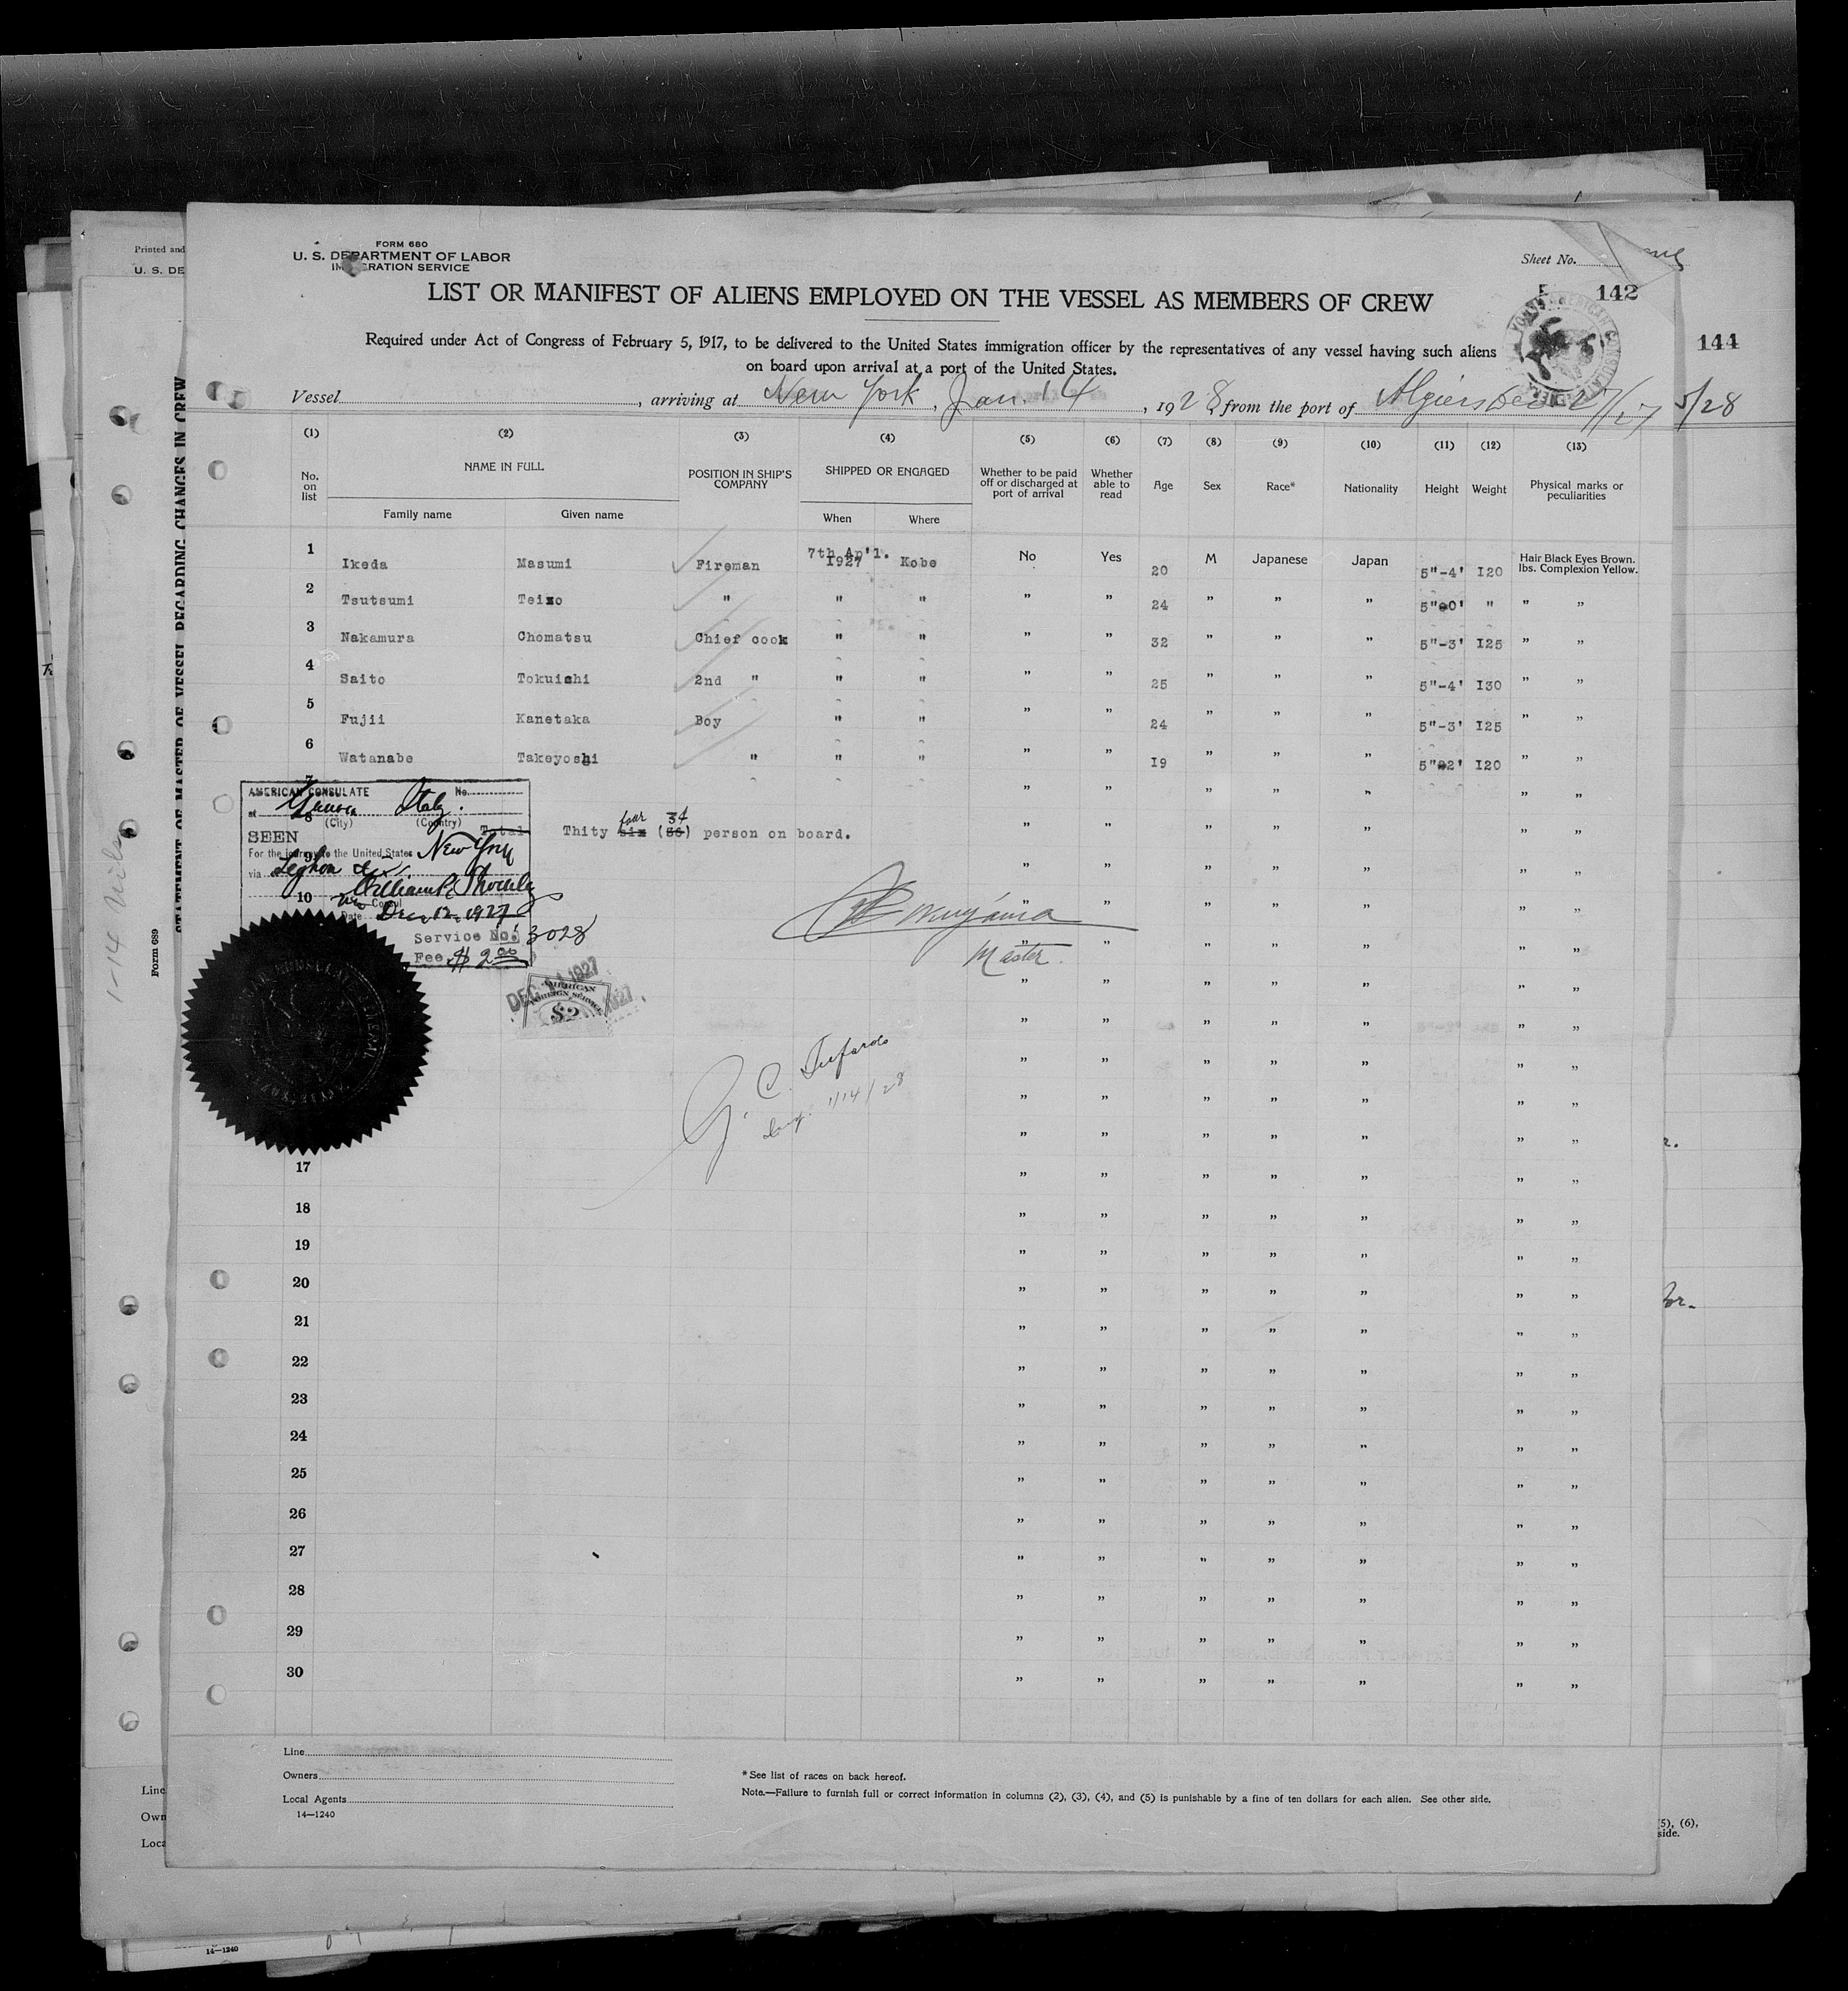 FORM 680
U. S. DEPARTMENT OF LABOR
IMMIGRATION SERVICE
Sheet No.
LIST OR MANIFEST OF ALIENS EMPLOYED ON THE VESSEL AS MEMBERS OF CREW
142
144
Required under Act of Congress of February 5, 1917, to be delivered to the United States immigration officer by the representatives of any vessel having such aliens
on board upon arrival at a port of the United States.
Vessel , arriving at New York , Jan. 14 , 1928, from the port of Algiers Dec 27/27
5/28
(1) (2) (3) (4) (5) (6) (7) (8) (9) (10) (11) (12) (13)
No. on list NAME IN FULL POSITION IN SHIP'S COMPANY SHIPPED OR ENGAGED Whether to be paid off or discharged at port of arrival Whether able to read Age Sex Race* Nationality Height Weight Physical marks or peculiarities
Family name Given name When Where
1 Ikeda Masumi Fireman 7th Ap'l. 1927 Kobe No Yes 20 M Japanese Japan 5"-4' I20 lbs. Hair Black Eyes Brown. Complexion Yellow.
2 Tsutsumi Teizo " " " " " 24 " " " 5"-0' " " "
3 Nakamura Chomatsu Chief cook " " " " 32 " " " 5"-3' I25 " "
4 Saito Tokuichi 2nd " " " " " 25 " " " 5"-4' I30 " "
5 Fujii Kanetaka Boy " " " " 24 " " " 5"-3' I25 " "
6 Watanabe Takeyoshi " " " " " I9 " " " 5"-2' I20 " "
7
8
9
10
Total Thity six four (36) 34 person on board.
AMERICAN CONSULATE No.
at Genoa Italy.
(City) (Country)
SEEN
For the journey to the United States New York
via Leghorn
William P.
Vice Consul
Date Dec. 12. 1927
Service No. 3028
Fee $ 2.00
DEC 1927
AMERICAN
FOREIGN SERVICE
$2
Master.
J. C.
Insp. 1/14/28
17
18
19
20
21
22
23
24
25
26
27
28
29
30
Line
Owners
Local Agents
14—1240
*See list of races on back hereof.
Note.—Failure to furnish full or correct information in columns (2), (3), (4), and (5) is punishable by a fine of ten dollars for each alien. See other side.
Printed and
U. S. DE
STATEMENT OF MASTER OF VESSEL REGARDING CHANGES IN CREW
Form 689
1-14
Line
Own
Loca
(5), (6),
side.
14—1240